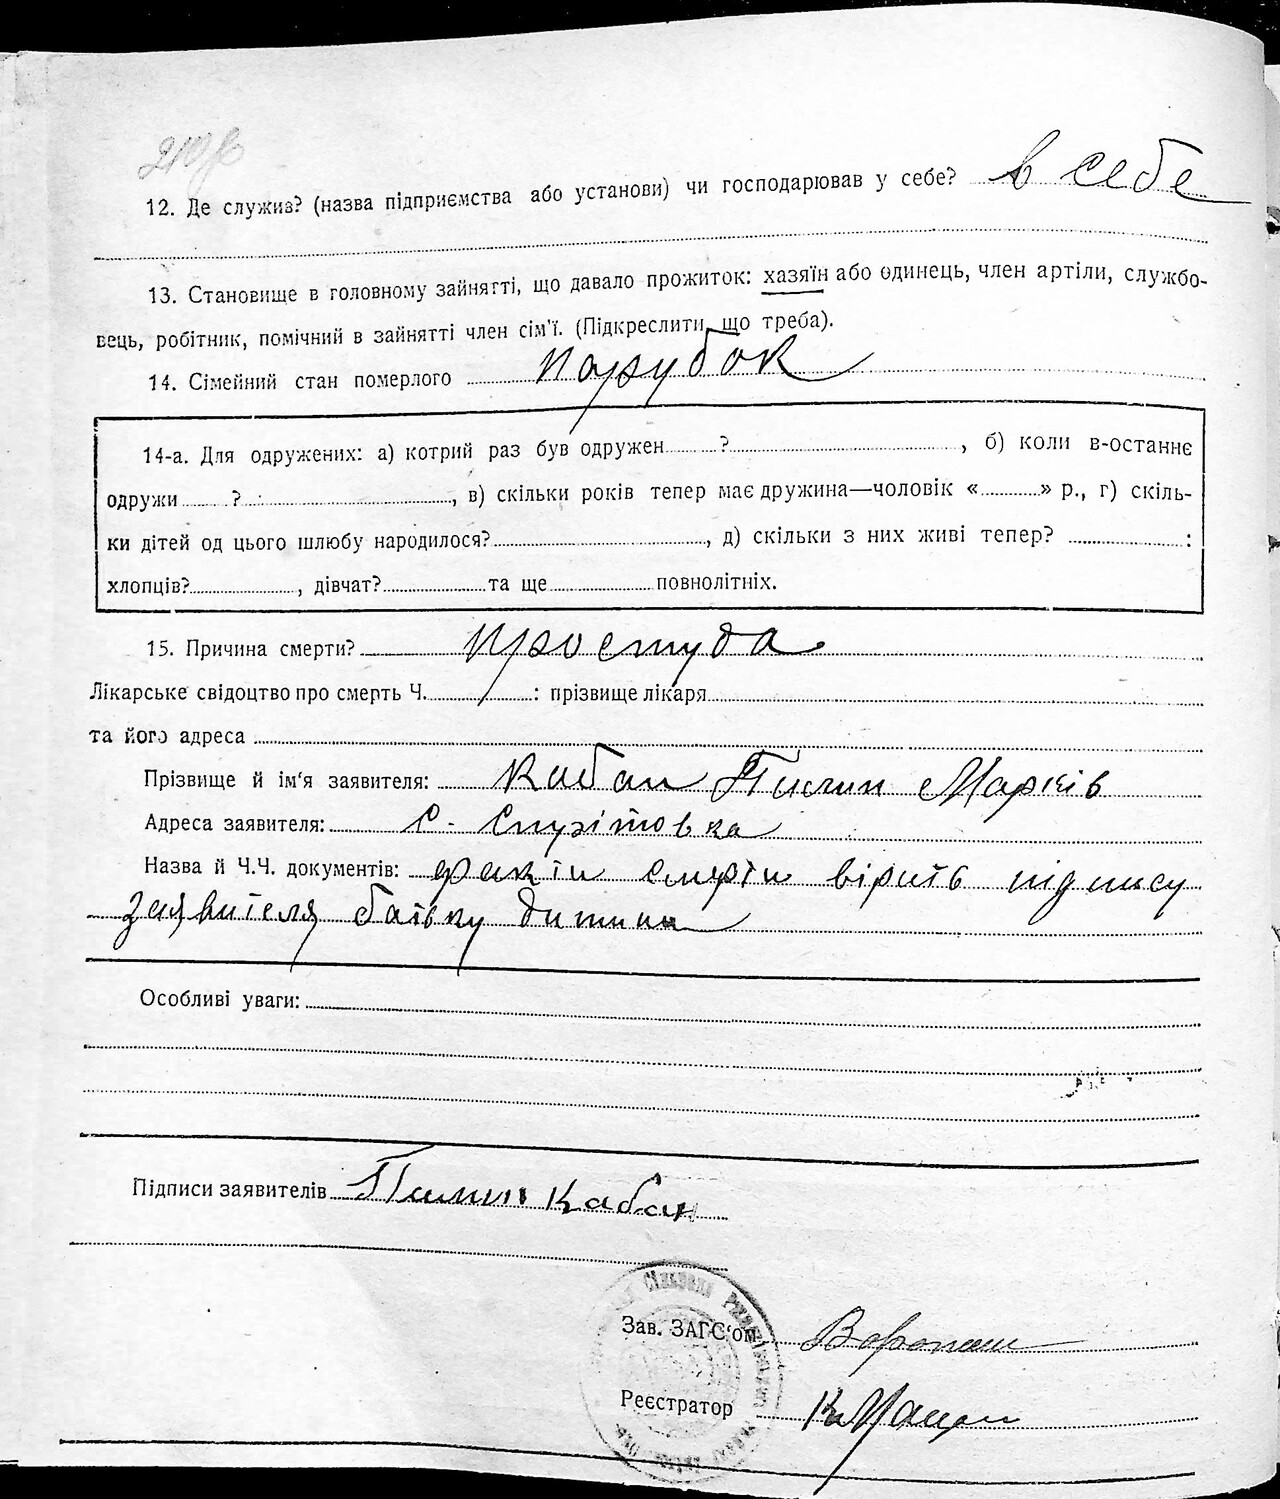 210
12. Де служив? (назва підприємства або установи) чи господарював у себе? в себе
13. Становище в головному зайнятті, що давало прожиток: хазяїн або одинець, член артіли, службо-
вець, робітник, помічний в зайнятті член сім'ї. (Підкреслити, що треба).
14. Сімейний стан померлого парубок
14-а. Для одружених: а) котрий раз був одружен ? , б) коли в-останнє
одружи ? , в) скільки років тепер має дружина—чоловік « » р., г) скіль-
ки дітей од цього шлюбу народилося? , д) скільки з них живі тепер? :
хлопців? , дівчат? та ще повнолітніх.
15. Причина смерти? простуда
Лікарське свідоцтво про смерть Ч. : прізвище лікаря
та його адреса
Прізвище й ім'я заявителя: Кабан Пилип Марків
Адреса заявителя: с.
Назва й Ч.Ч. документів: факт смерти вірить підпису
заявителя батьку дитини
Особливі уваги:
Підписи заявителів Пилип Кабан
Зав. ЗАГС'ом
Реєстратор